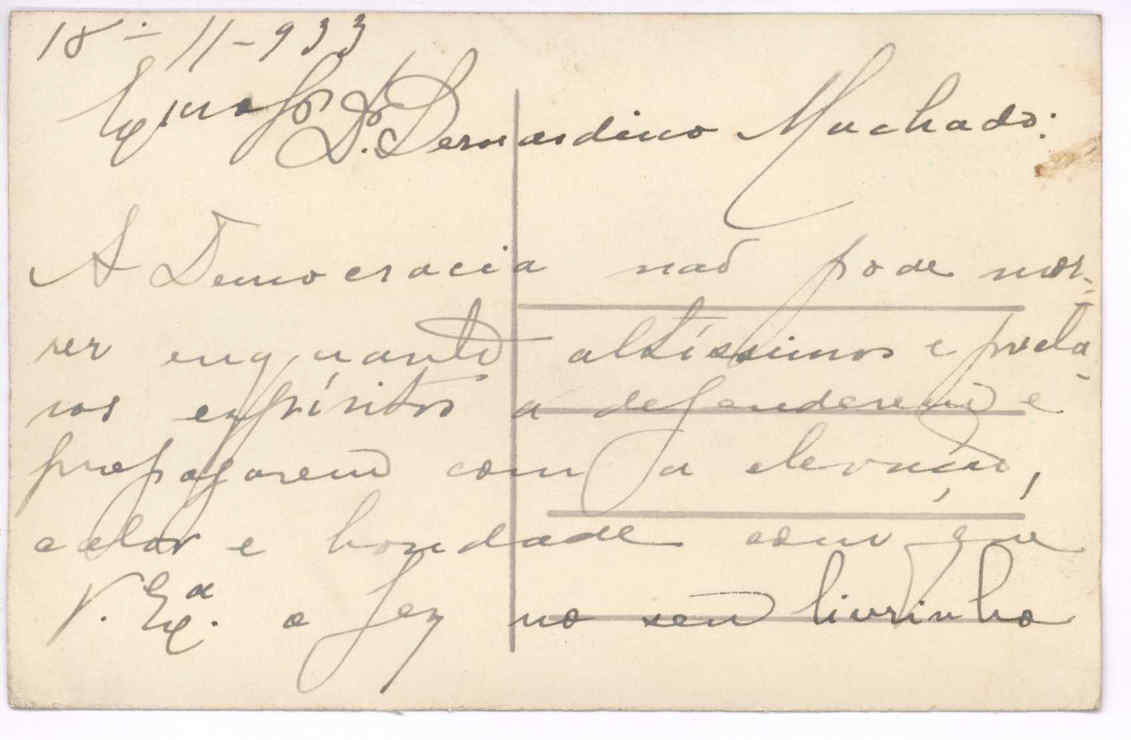 18-11-933
Exmo Sr. Dr. Bernardino Machado:
A Democracia não pode mor-
rer enquanto altíssimos e precla-
ros espíritos a defenderem e
propagarem com a elevação,
calor e bondade com que
V. Exª. o fez no seu livrinho